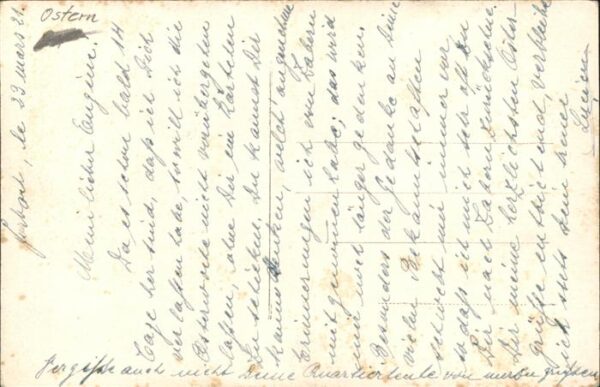 Ostern
le 23 mars 21.
Mein lieber Eugène!
Da es schon bald 14
Tage her sind, daß ich Dich
verlassen habe, so will ich die
Osterwoche nicht vorübergehen
lassen, ohne Dir ein Kärtchen
zu schicken. Du kannst Dir
kaum denken, welch' angenehme
Erinnerungen ich von Zabern
mitgenommen habe; das wird
mir noch länger gedenken.
Besonders der Gedanke an Deine
vielen Bekanntschaften
schwebt mir immer vor
so daß ich mich sehr oft zu
Dir nach Zabern zurücksehne.
Dir meine herzlichsten Oster-
grüße entbietend, verbleibe
ich stets Dein treuer
Lucien
Vergesse auch nicht Deine Quartierleute von mir zu grüßen